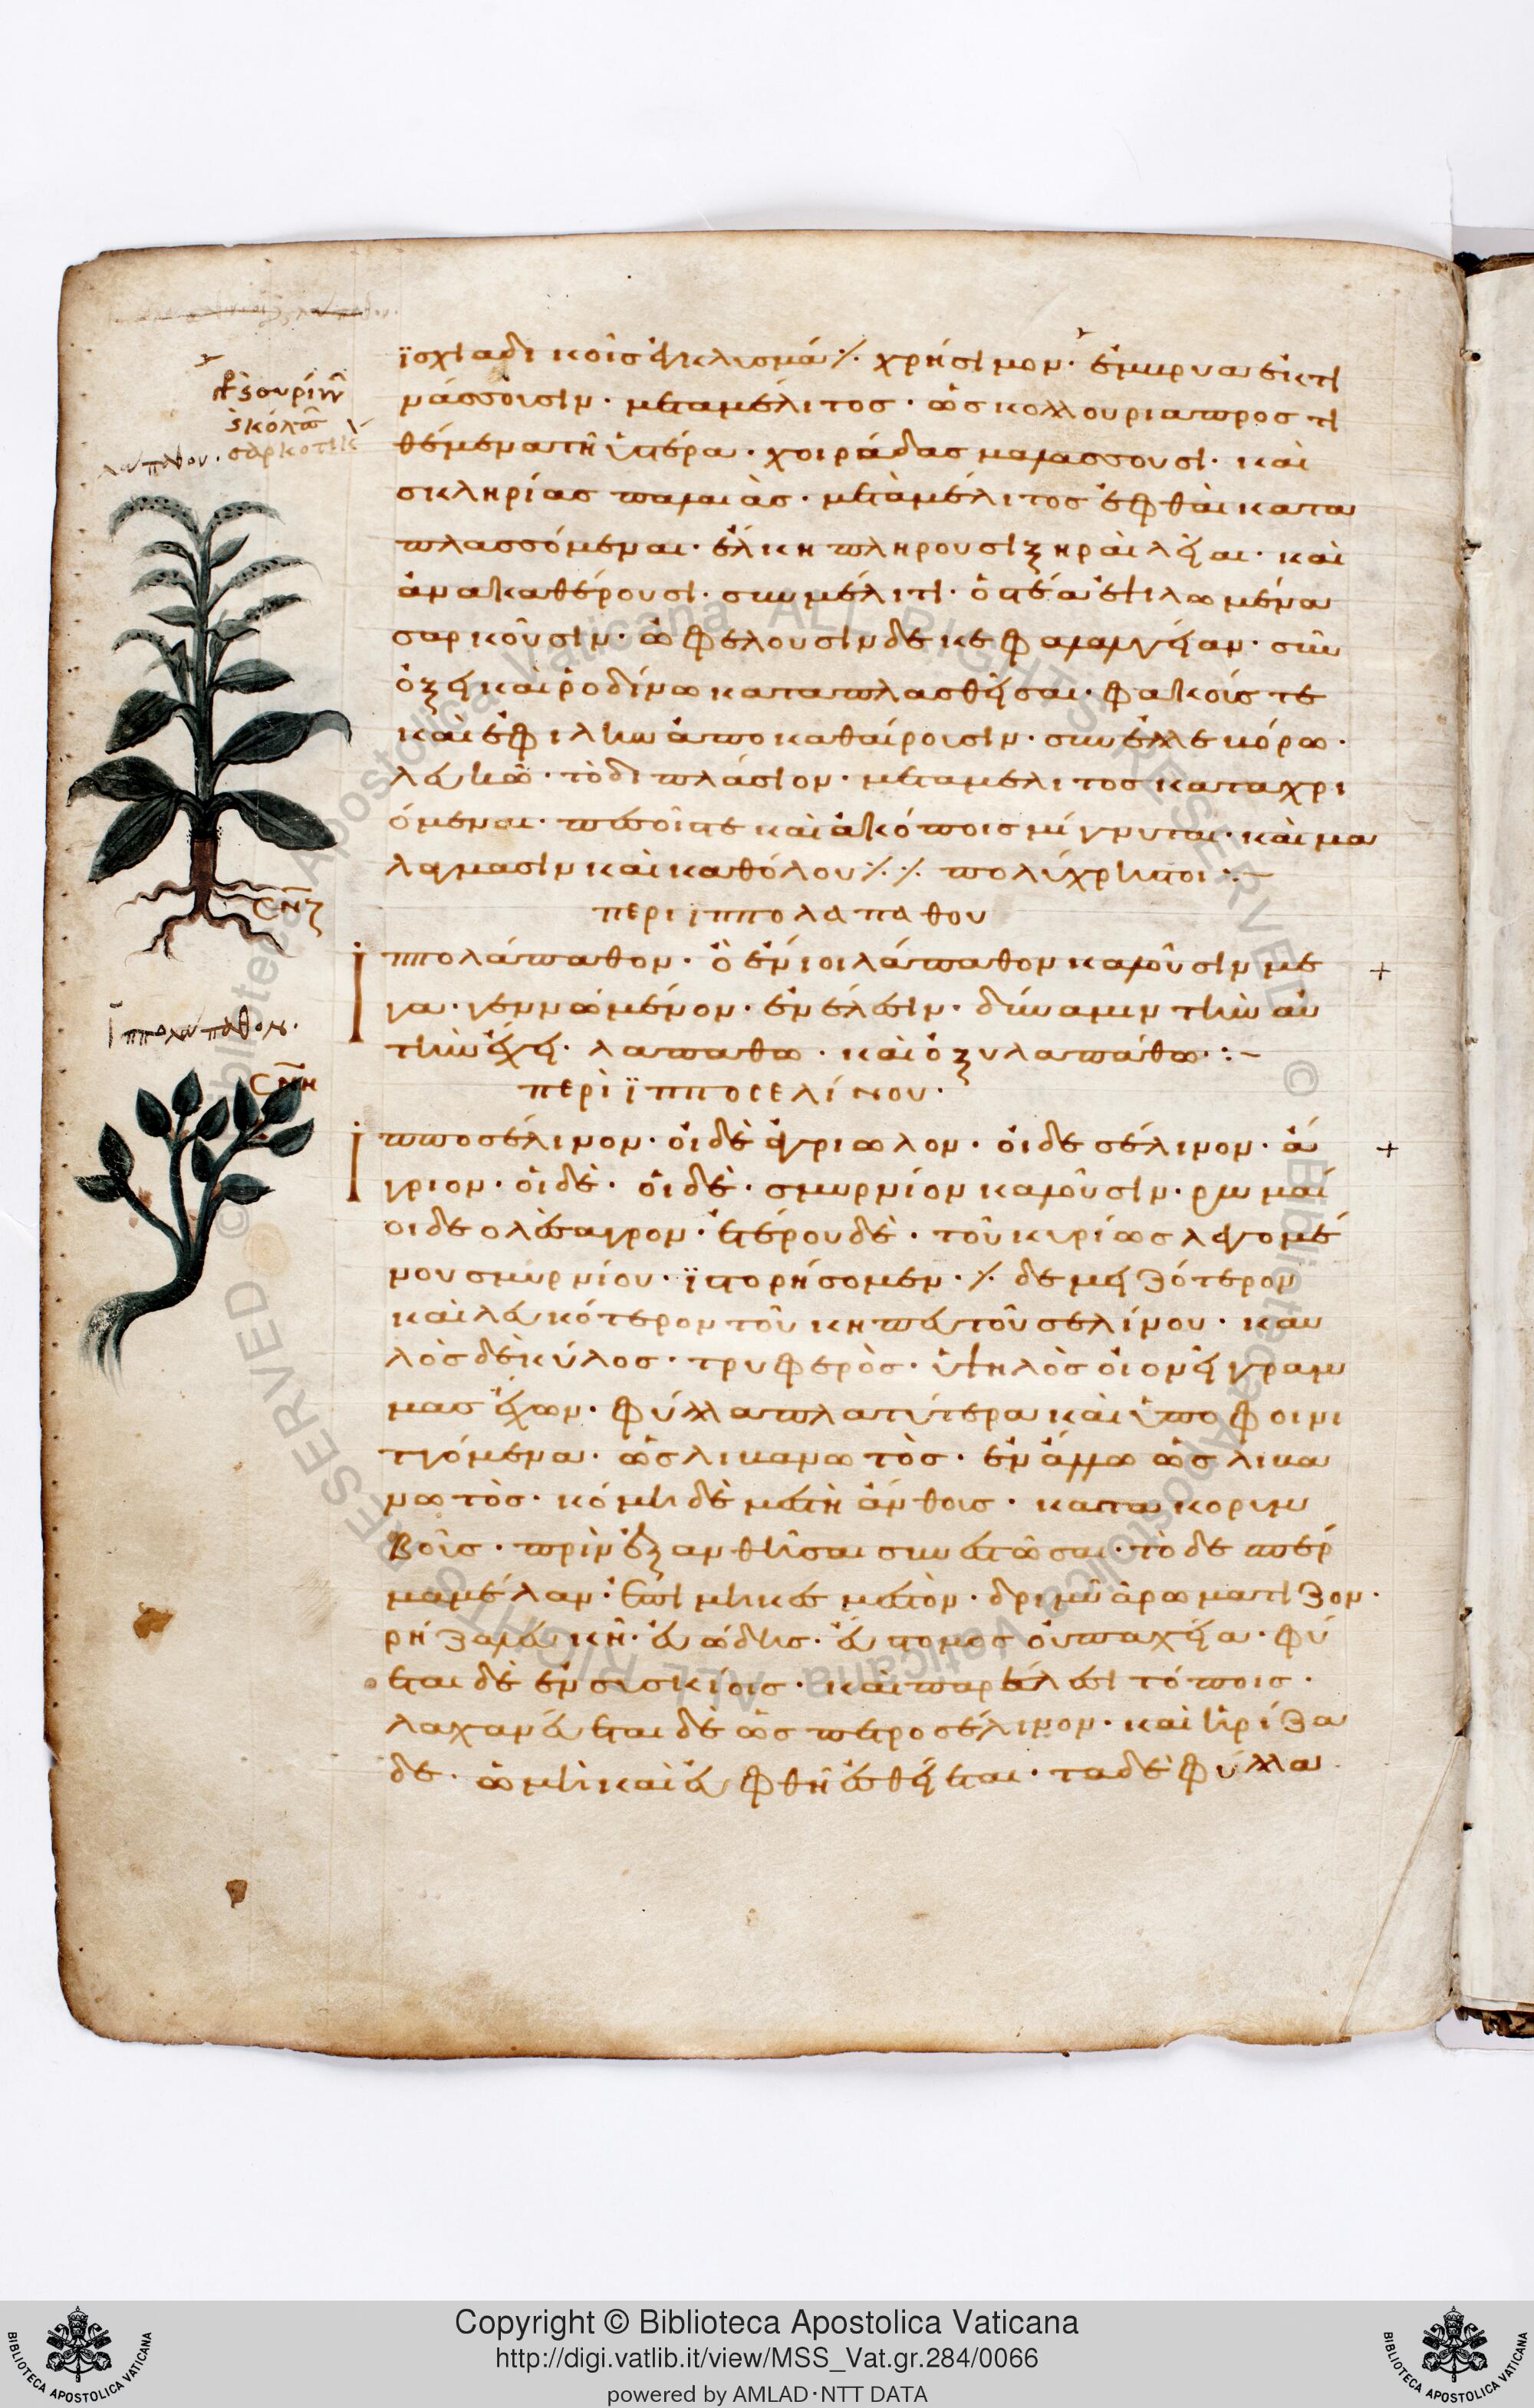 ϊσχιαδικοῖς ἔγκλυσμά ⁒ χρήσιμον· ἔμμηνα ἐκτι
νάσσουσιν· μετα μέλιτος· ὡς κολλούρια προς τι
θέμενα τῆ ὑστέρα· χοιράδας μαλασσουσι· καὶ
σκληρίας παλαιὰς· μετὰ μέλιτος ἑφθαὶ κατα
πλασσόμεναι· ἕλκη πληρουσι ξηραὶ λεῖαι· καὶ
ἀνακαθέρουσι· συν μέλιτι· ὀστέα ἐψιλωμένα
σαρκοῦσιν· ὠφελουσιν δε κεφαλαλγείαν· σὺν
ὄξει καὶ ῥοδίνω καταπλασθεῖσαι· φακούς τε
καὶ ἔφιλιν ἀποκαθαίρουσιν· συν ἐλλεβόρω·
λευκῶ· τὸ διπλάσιον· μετα μέλιτος καταχρι
όμεναι· πεσσοῖς τε καὶ ἀκόποις μίγνυται· καὶ μα
λάγμασιν καὶ καθόλου ⁒ ⁒ πολύχρηστοι :~
περι ιππολαπαθου
Ιππολάπαθον· ὃ ἔνιοι λάπαθον καλοῦσιν με
γα· γεννώμενον· ἐν ἕλεσιν· δύναμιν τὴν αὐ
τὴν ἔχει· λαπαθω· καὶ ὀξυλαπάθω :~
περὶ ϊπποσελίνου·
Ιπποσέλινον· οἱ δὲ ἀγριωλον· οἱ δε σέλινον· ἄ
γριον· οἱ δὲ· οἱ δὲ· σμυρνίον καλοῦσιν· ρωμαί
οι δε ολέσαγρον· ἑτέρου δὲ· τοῦ κυρίως λεγομέ
νου σμυρνίου· ϊστορήσομεν· ⁒ δε μειζότερον
καὶ λευκότερον τοῦ κηπευτοῦ σελίνου· καυ
λὸς δὲ κύλος· τρυφερὸς· ὑψηλὸς οἱονεὶ γραμ
μας ἔχων· φύλλα πλατύτερα καὶ ὑποφοινι
κιζόμενα· ὡς λιβανωτὸς· ἐν ἄλλω ὡς λιβα
νωτὸς· κόμη δὲ μεστὴ ἄνθους· κατα κορυμ
βοῖς· πρὶν ἐξανθῆσαι συνεστῶσαι· τὸ δε σπέρ
μα μέλαν· ἐπίμηκες μεστὸν· δριμὺ ἀρωματίζον·
ρήζα λευκὴ· εὐώδης· εὔστομος οὐ παχεῖα· φύ
εται δὲ ἐν συσκίοις· καὶ παρ ἕλεσι τόποις·
λαχανεύεται δὲ ὡς περ ὀσέλινον· καὶ ἡ ρίζα
δε· ὠμὴ καὶ ἑφθὴ ἐσθίεται· τα δὲ φύλλα
λάπαθον·
σαρκοτικ
ϲν̅ζ
ϊππολάπαθον·
ϲν̅η
Copyright © Biblioteca Apostolica Vaticana
http://digi.vatlib.it/view/MSS_Vat.gr.284/0066
powered by AMLAD·NTT DATA
BIBLIOTECA APOSTOLICA VATICANA
BIBLIOTECA APOSTOLICA VATICANA